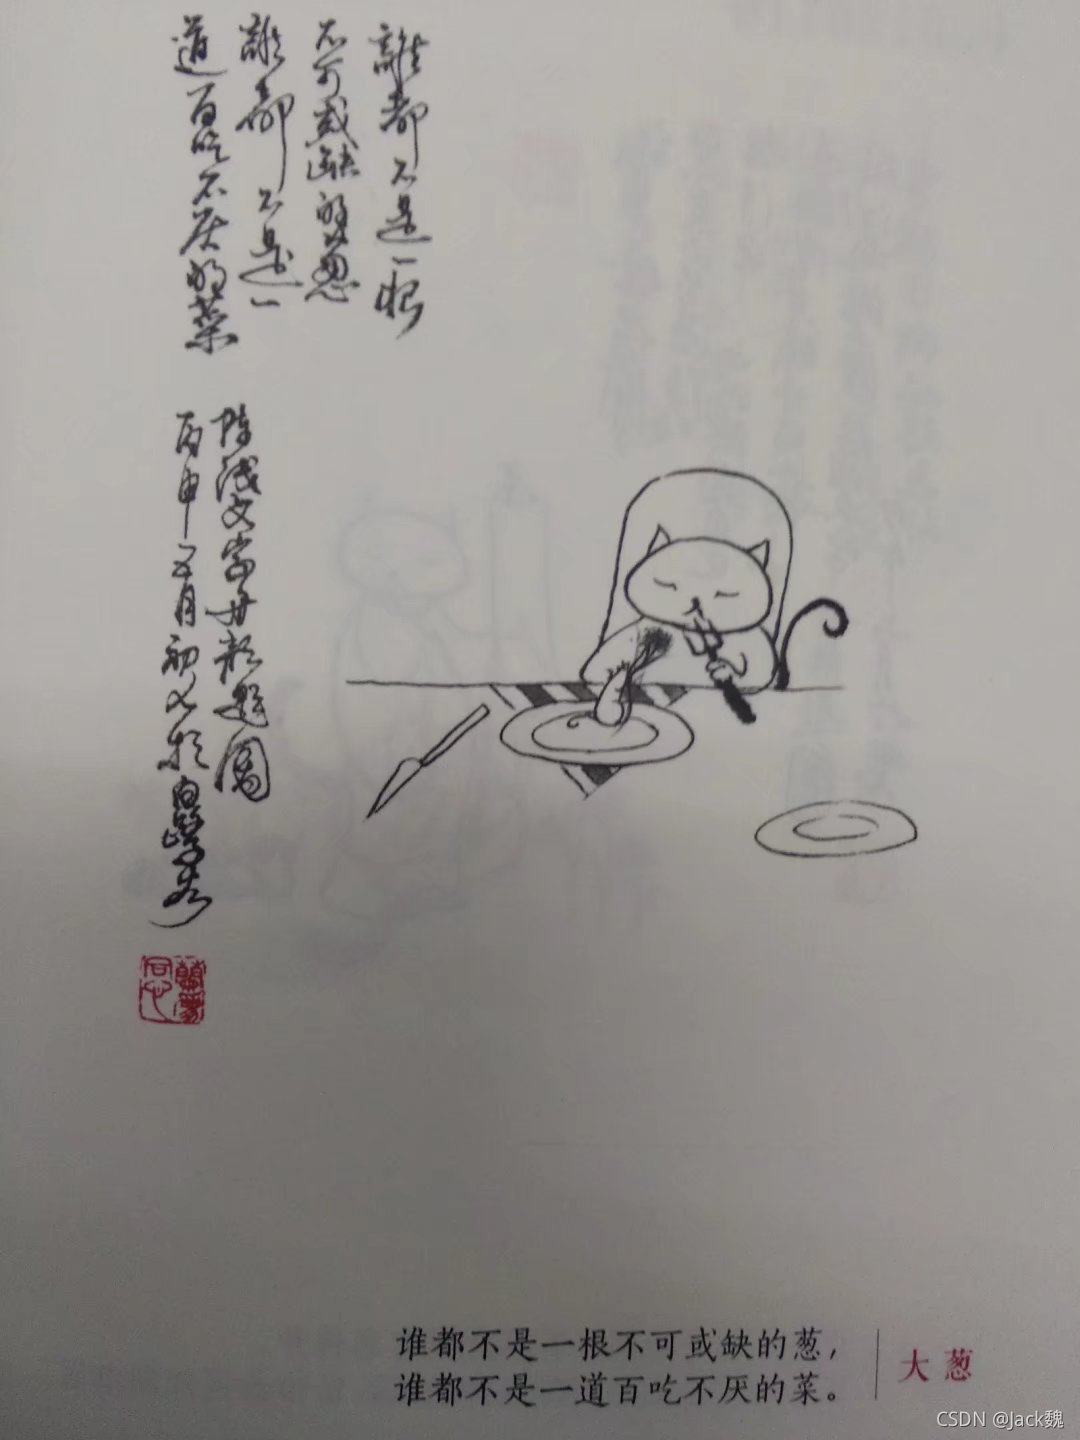 誰都不是一根
不可或缺的葱
誰都不是一
道百吃不厌的菜
陈浅文字丹彤题图
丙申五月初
谁都不是一根不可或缺的葱，
谁都不是一道百吃不厌的菜。
大葱
CSDN @Jack魏